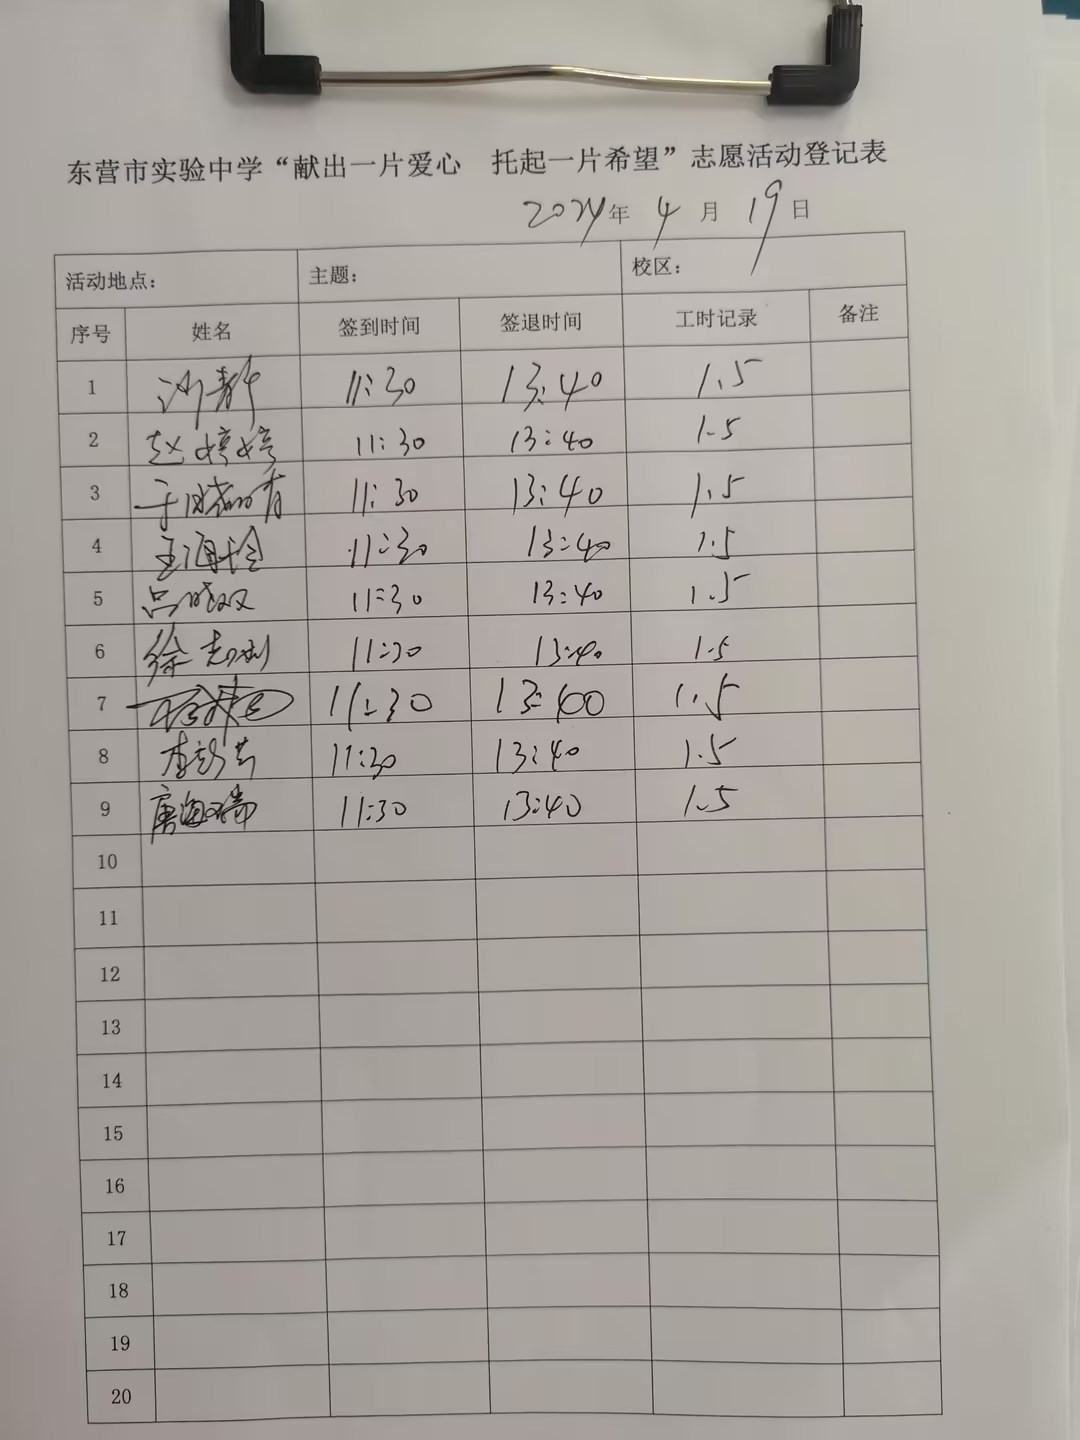 东营市实验中学“献出一片爱心 托起一片希望”志愿活动登记表
2024年 4月 19日
活动地点： 主题： 校区：
序号 姓名 签到时间 签退时间 工时记录 备注
1 11:30 13:40 1.5
2 赵婷婷 11:30 13:40 1.5
3 11:30 13:40 1.5
4 11:30 13:40 1.5
5 吕晓双 11:30 13:40 1.5
6 徐志刚 11:30 13:40 1.5
7 11:30 1.5
8 11:30 13:40 1.5
9 唐海瑞 11:30 13:40 1.5
10
11
12
13
14
15
16
17
18
19
20